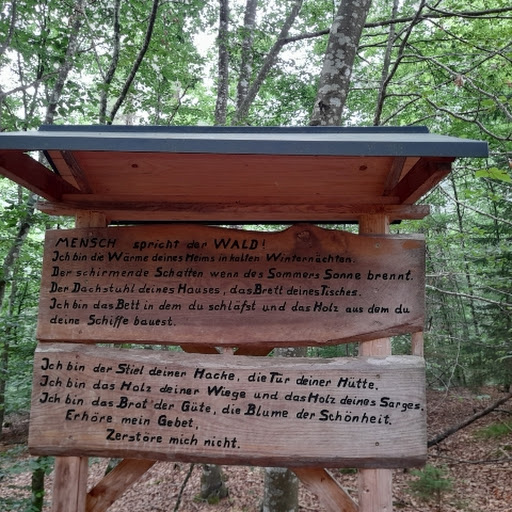 MENSCH spricht der WALD!
Ich bin die Wärme deines Heims in kalten Winternächten.
Der schirmende Schatten wenn des Sommers Sonne brennt.
Der Dachstuhl deines Hauses, das Brett deines Tisches.
Ich bin das Bett in dem du schläfst und das Holz aus dem du
deine Schiffe bauest.
Ich bin der Stiel deiner Hacke, die Tür deiner Hütte.
Ich bin das Holz deiner Wiege und das Holz deines Sarges.
Ich bin das Brot der Güte, die Blume der Schönheit.
Erhöre mein Gebet,
Zerstöre mich nicht.